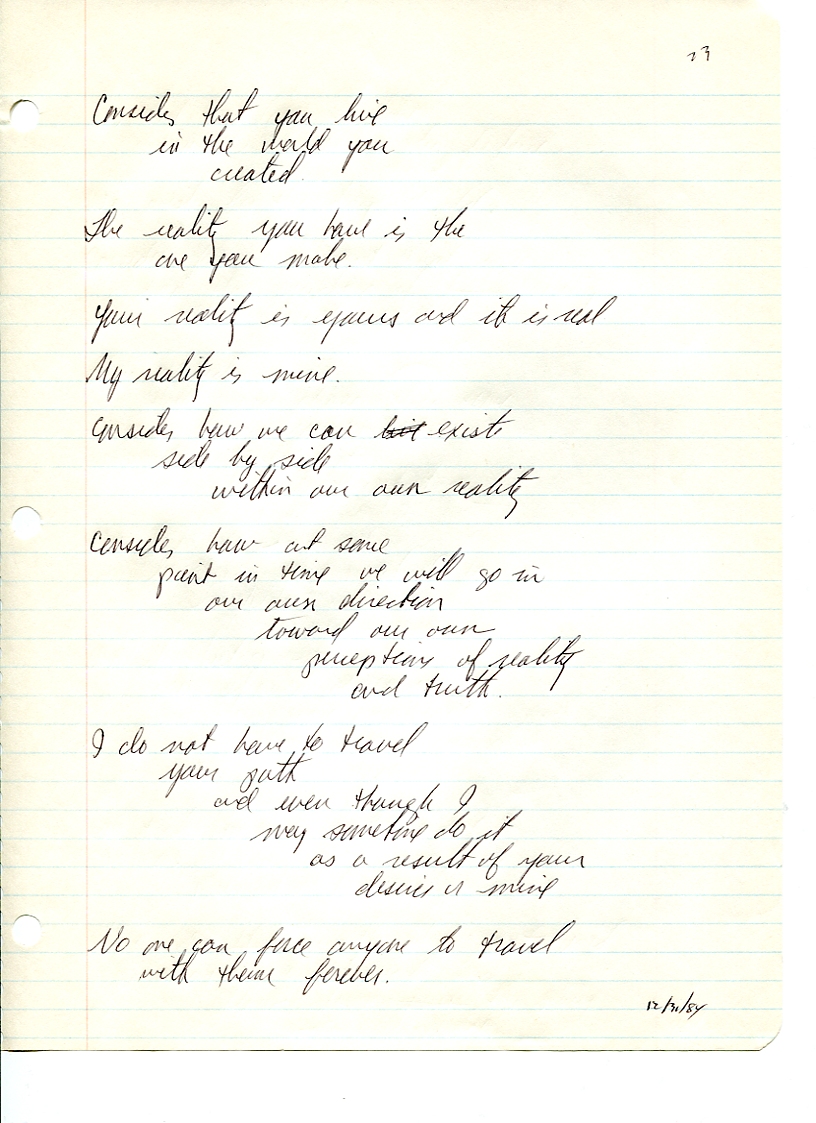 23
Consider that you live
in the world you
created.
The reality you have is the
one you make.
Your reality is yours and it is real
My reality is mine.
Consider how we can exist
side by side
within our own reality
Consider how at some
point in time we will go in
our own direction
toward our own
perceptions of reality
and truth.
I do not have to travel
your path
and even though I
may sometime do it
as a result of your
desires or mine
No one can force anyone to travel
with them forever.
12/31/84